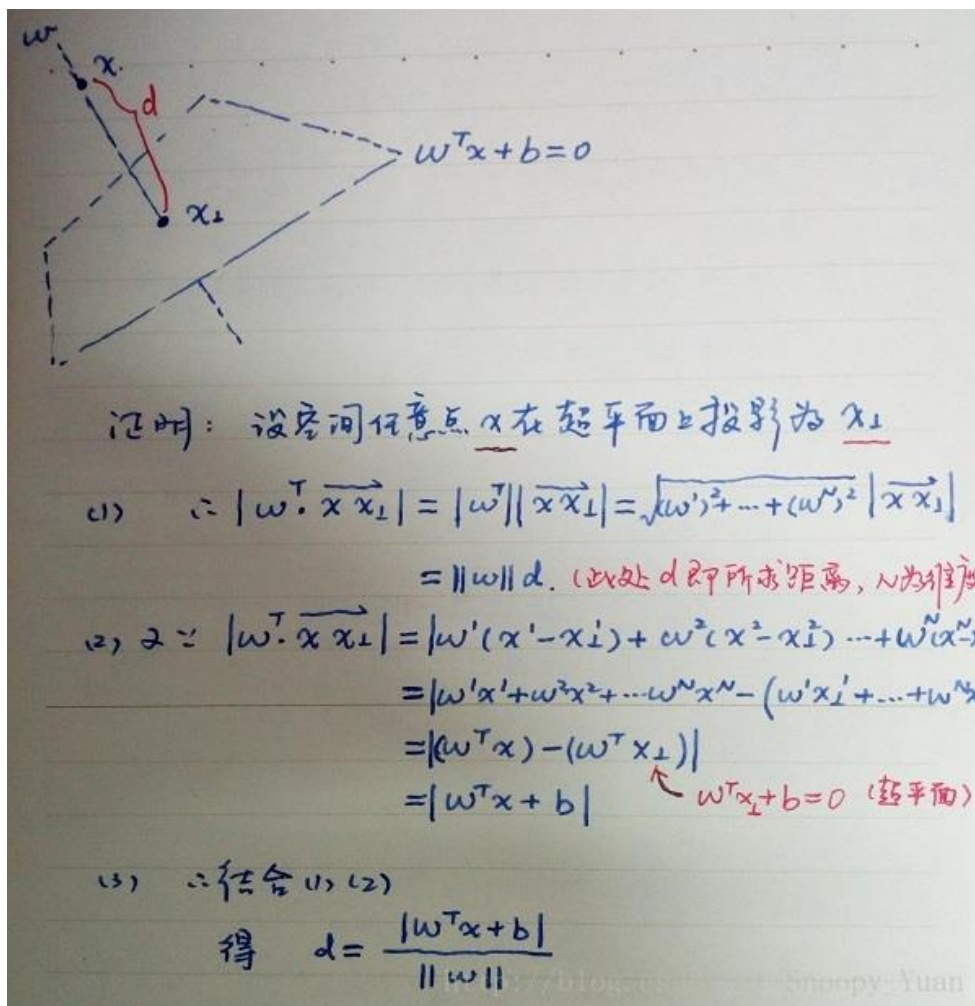 w
x
d
wᵀx+b=0
x⊥
证明: 设空间任意点 x 在超平面上投影为 x⊥
(1) ∴ |wᵀ·xx⊥| = |wᵀ||xx⊥| = √(w¹)²+…+(wᴺ)² |xx⊥|
= ||w|| d. (此处 d 即所求距离, N为维度
(2) 又∵ |wᵀ·xx⊥| = |w¹(x¹-x⊥¹) + w²(x²-x⊥²) …+ wᴺ(xᴺ-
= |w¹x¹+w²x²+…wᴺxᴺ-(w¹x⊥¹+…+wᴺx
= |(wᵀx)-(wᵀx⊥)|
= |wᵀx+b| wᵀx⊥+b=0 (超平面)
(3) ∴结合(1)(2)
得 d= |wᵀx+b| / ||w||
http://blog.csdn.net/Snoopy_Yuan